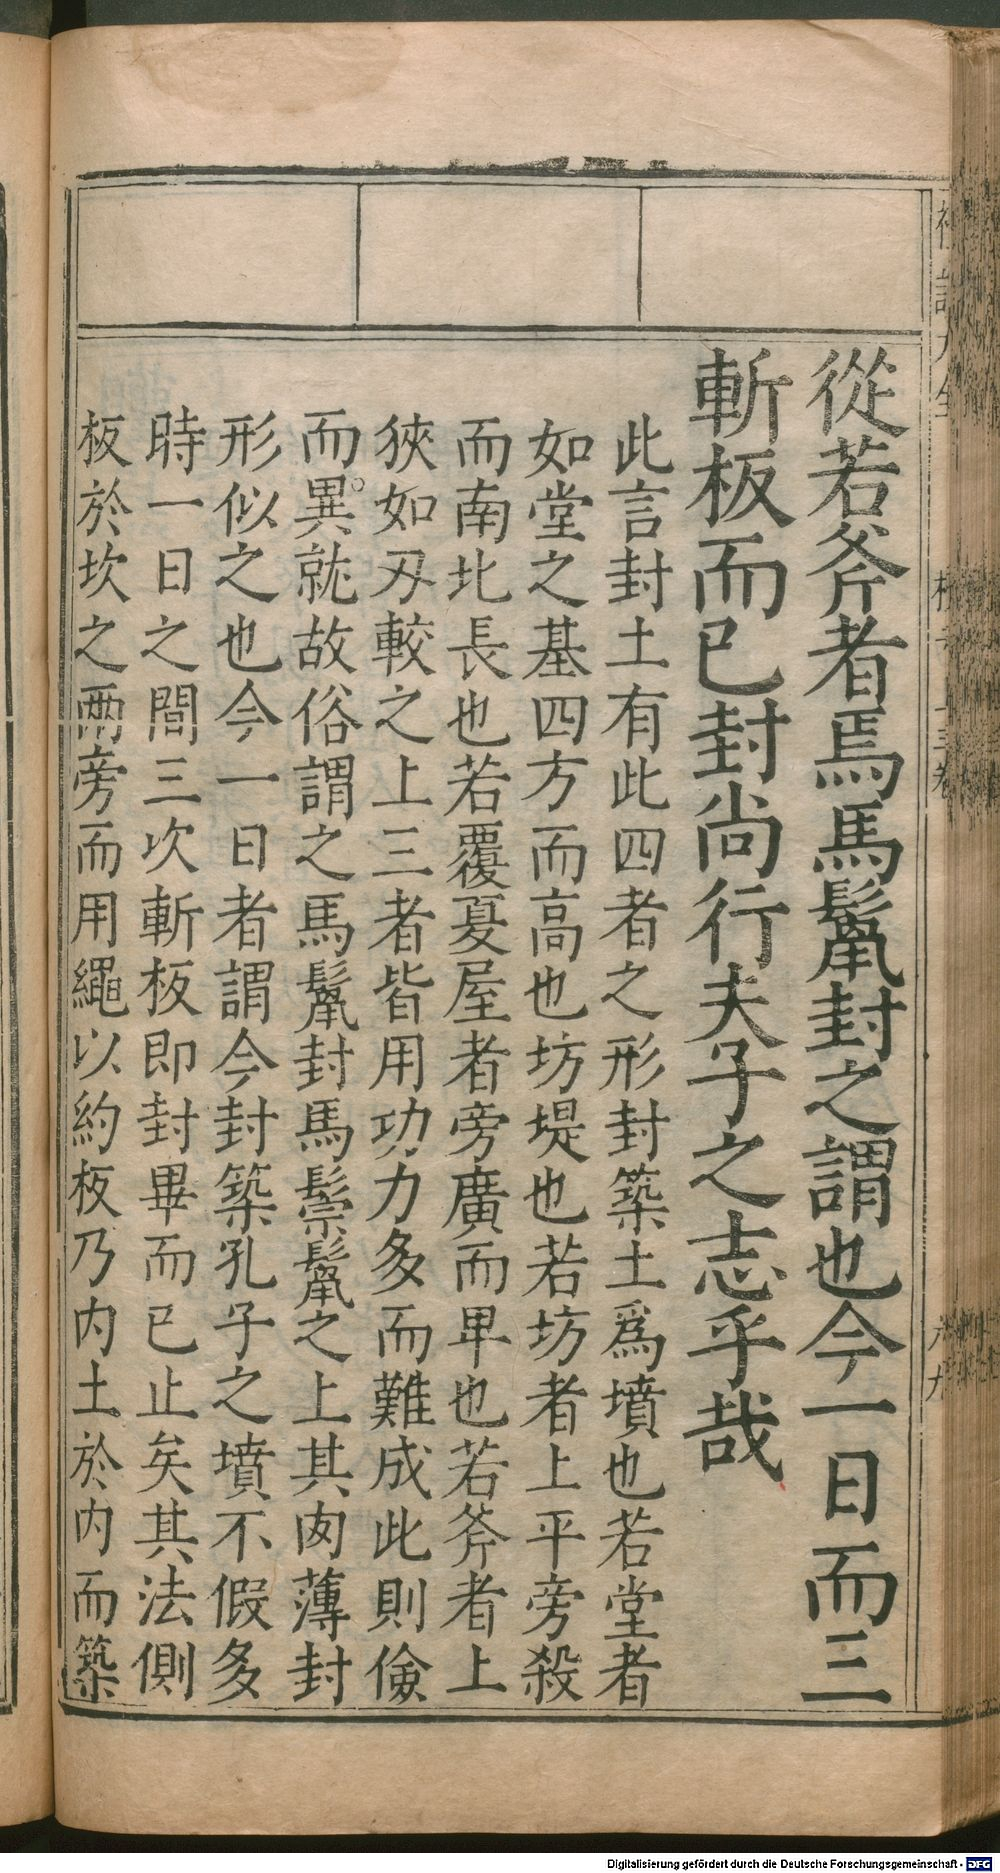 從若斧者焉馬鬛封之謂也今一日而三
斬板而已封尚行夫子之志乎哉
此言封土有此四者之形封築土爲墳也若堂者
如堂之基四方而高也坊堤也若坊者上平旁殺
而南北長也若覆夏屋者旁廣而卑也若斧者上
狹如刃較之上三者皆用功力多而難成此則儉
而異就故俗謂之馬鬛封馬鬃鬛之上其肉薄封
形似之也今一日者謂今封築孔子之墳不假多
時一日之間三次斬板即封畢而已止矣其法側
板於坎之兩旁而用繩以約板乃内土於内而築
Digitalisierung gefördert durch die Deutsche Forschungsgemeinschaft - DFG